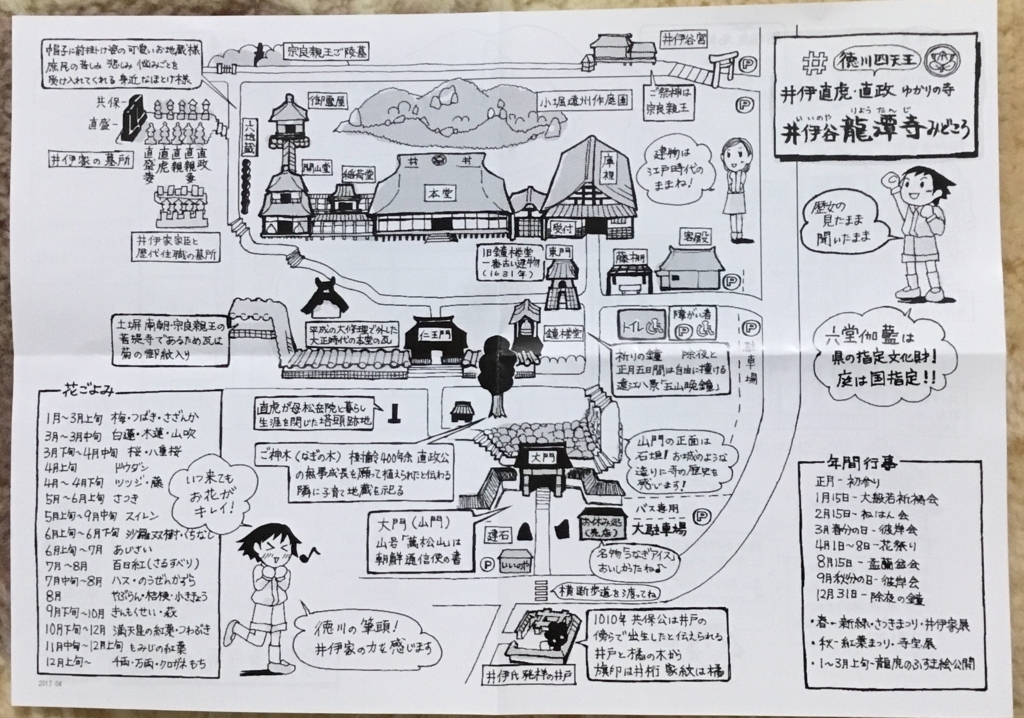 徳川四天王
井伊直虎・直政 ゆかりの寺
いいのや りょうたんじ
井伊谷 龍潭寺みどころ
帽子に前掛け姿の可愛いお地蔵様
庶民の苦しみ 悲しみ 悩みごとを
受け入れてくれる身近なほとけ様
宗良親王ご陵墓
井伊谷宮
P
ご祭神は
宗良親王
P
共保
直盛
井伊家の墓所
直盛妻
直虎
直親
直親妻
直政
井伊家家臣と
歴代住職の墓所
六地蔵
御霊屋
小堀遠州作庭園
開山堂
稲荷堂
井 井
本堂
庫裡
受付
建物は
江戸時代の
ままね!
歴女の
見たまま
聞いたまま
旧鐘楼堂
一番古い建物
(1631年)
東門
藤棚
客殿
P
土塀 南朝・宗良親王の
菩提寺であるため瓦は
菊の御紋入り
平成の大修理で外した
大正時代の本堂の瓦
仁王門
鐘楼堂
トイレ
障がい者
P
P
駐車場
祈りの鐘 除夜と
正月五日間は自由に撞ける
遠江八景「五山晩鐘」
六堂伽藍は
県の指定文化財!
庭は国指定!!
直虎が母松岳院と暮らし
生涯を閉じた塔頭跡地
ご神木(なぎの木) 樹齢400年余 直政公
の無事成長を願って植えられたと伝わる
隣に子育て地蔵を祀る
大門
山門の正面は
石垣!お城のような
造りに寺の歴史を
感じます!
大門(山門)
山号「萬松山」は
朝鮮通信使の書
遠石
お休み処
(売店)
バス専用
大駐車場 P
P
いいのや
名物「うなぎアイス」
おいしかったね♪
横断歩道を渡ってね
井伊氏発祥の井戸
1010年 共保公は井戸の
傍らで出生したと伝えられる
井戸と橘の木から
旗印は井桁 家紋は橘
花ごよみ
1月~3月上旬 梅・つばき・さざんか
3月~3月中旬 白蓮・木蓮・山吹
3月下旬~4月中旬 桜・八重桜
4月上旬 ドウダン
4月~4月下旬 ツツジ・藤
5月~6月上旬 さつき
5月上旬~9月中旬 スイレン
6月上旬~6月下旬 沙羅双樹・くちなし
6月上旬~7月 あじさい
7月~8月 百日紅(さるすべり)
7月中旬~8月 ハス・のうぜんかずら
8月 やぶらん・桔梗・小ききょう
9月下旬~10月 きんもくせい・萩
10月下旬~12月 満天星の紅葉・つわぶき
11月中旬~12月上旬 もみじの紅葉
12月上旬~ 千両・万両・クロガネもち
2017.04
いつ来ても
お花が
キレイ!
徳川の筆頭!
井伊家の力を感じます
年間行事
正月-初参り
1月15日-大般若祈祷会
2月15日-ねはん会
3月春分の日-彼岸会
4月1日~8日-花祭り
8月15日-盂蘭盆会
9月秋分の日-彼岸会
12月31日-除夜の鐘
・春-新緑・さつきまつり・井伊家展
・秋-紅葉まつり・寺宝展
・1~3月上旬-龍虎のふすま絵公開